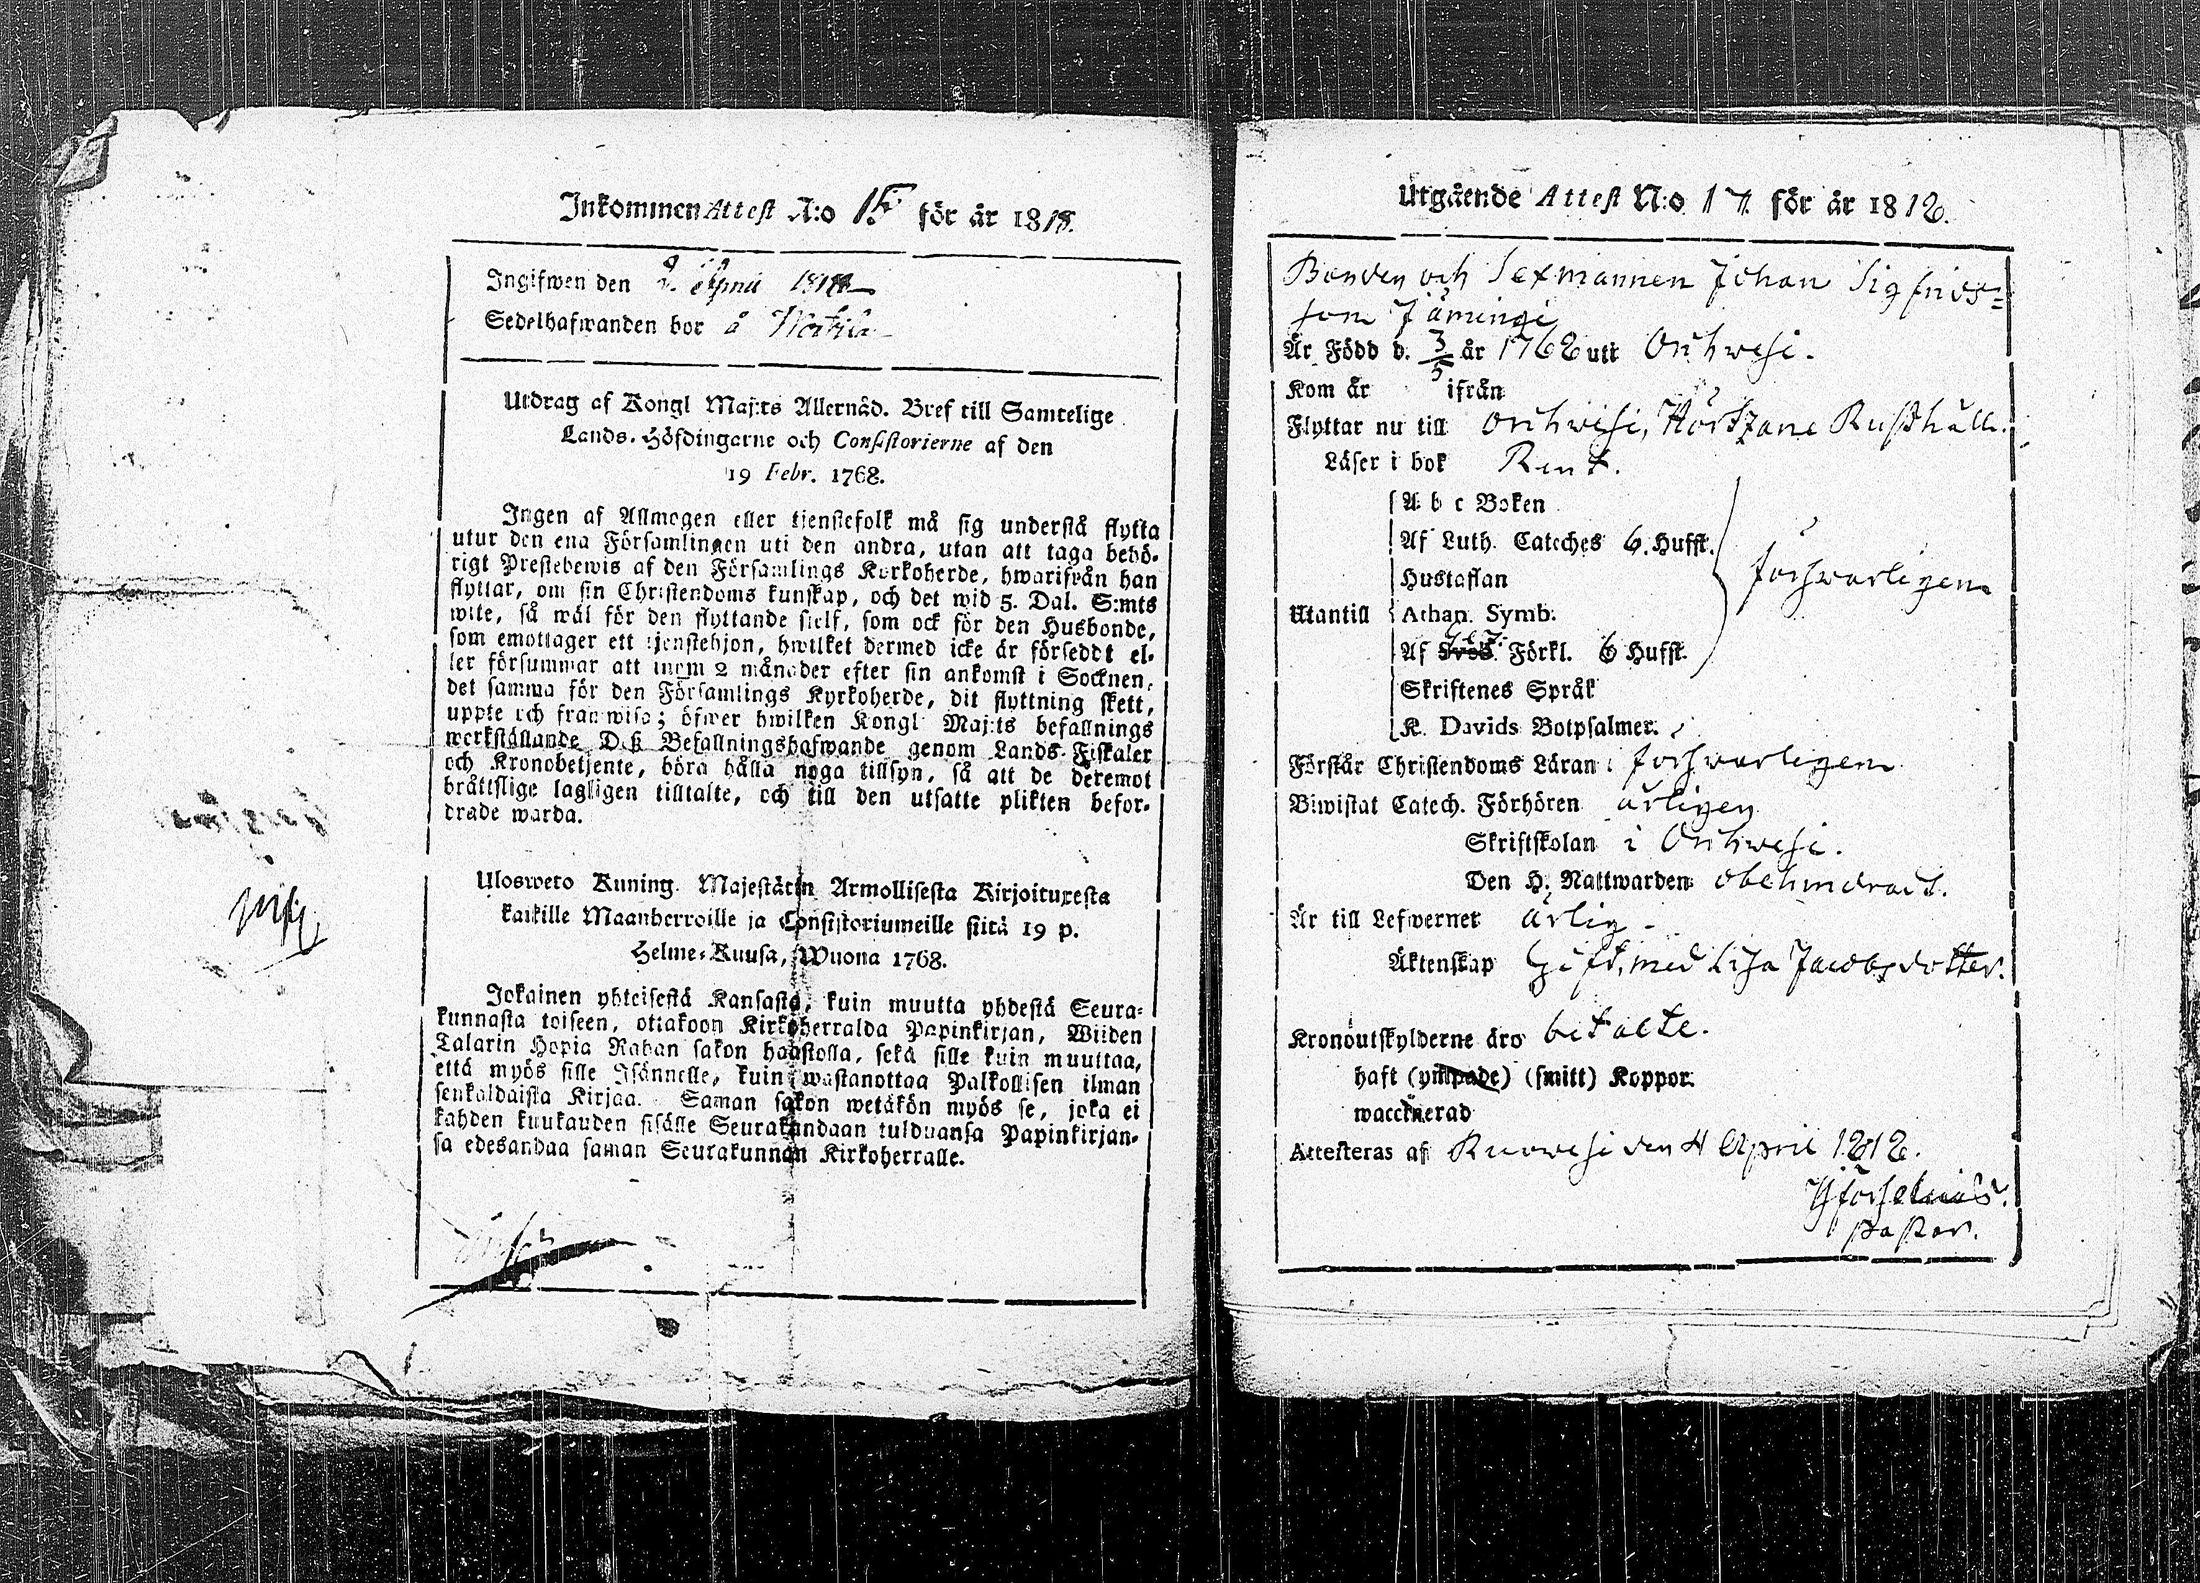 Inkommen Attest N:o 15 för år 1818.
Ingifwen den 2. April 1818
Sedelhafwanden bor å
Utdrag af Kongl Maj:ts Allernåd. Bref till Samtelige
Lands-Höfdingarne och Consistorierne af den
19 Febr. 1768.
Ingen af Allmogen eller tjenstefolk må sig understå flytta
utur den ena Församlingen uti den andra, utan att taga behö-
rigt Prestebewis af den Församlings Kyrkoherde, hwarifrån han
flyttar, om sin Christendoms kunskap, och det wid 5. Dal. S:mts
wite, så wäl för den flyttande sielf, som ock för den Husbonde,
som emottager ett tjenstehjon, hwilket dermed icke är försedt el-
ler försummar att inom 2 månader efter sin ankomst i Socknen,
det samma för den Församlings Kyrkoherde, dit flyttning skett,
uppte och framwisa; öfwer hwilken Kongl Maj:ts befallnings
werkställande Deß Befallningshafwande genom Lands-Fiskaler
och Kronobetjente, böra hålla noga tillsyn, så att de deremot
bråttslige lagligen tilltalte, och till den utsatte plikten befor-
drade warda.
Uloswoto Kuning. Majestätin Armollisesta Kirjoituxesta
kaikille Maanherroille ja Consistoriumeille siitä 19 p.
Helme-Kuusa, Wuona 1768.
Jokainen yhteisestä Kansasta, kuin muutta yhdestä Seura-
kunnasta toiseen, ottakoon Kirkoherralda Papinkirjan, Wiiden
Talarin Hopia Rahan sakon haastolla, sekä sille kuin muuttaa,
että myös sille Isännelle, kuin wastanottaa Palkollisen ilman
senkaldaista Kirjaa. Saman sakon wetäkön myös se, joka ei
kahden kuukauden sisälle Seurakundaan tulduansa Papinkirjan-
sa edesandaa saman Seurakunnan Kirkoherralle.
Utgående Attest N:o 17 för år 1818.
Bonden och Sexmannen Johan Sigfrids=
son Jämingi
Är Född d. 3/5 år 1768 uti Orihwesi.
Kom år ifrån
Flyttar nu till Orihwesi, Rußthåll.
Läser i bok Rent.
A b c Boken
Af Luth. Cateches 6. Hufst.
Hustaflan
försvarligen
Utantill Athan. Symb.
Af Sveb. Förkl. 6 Hufst.
Skriftenes Språk
K. Davids Botpsalmer.
Förstår Christendoms Läran försvarligen
Biwistat Catech. Förhören årligen
Skriftskolan i Orihwesi.
Den H. Nattwarden obehindradt.
Är till Lefwernet ärlig
Äktenskap Gift, med Lisa Jacobsdotter.
Kronoutskylderne äro betalte.
haft (ympade) (smitt) Koppor.
waccinerad
Attesteras af Ruowesi den 4 April 1818.
Pastor.